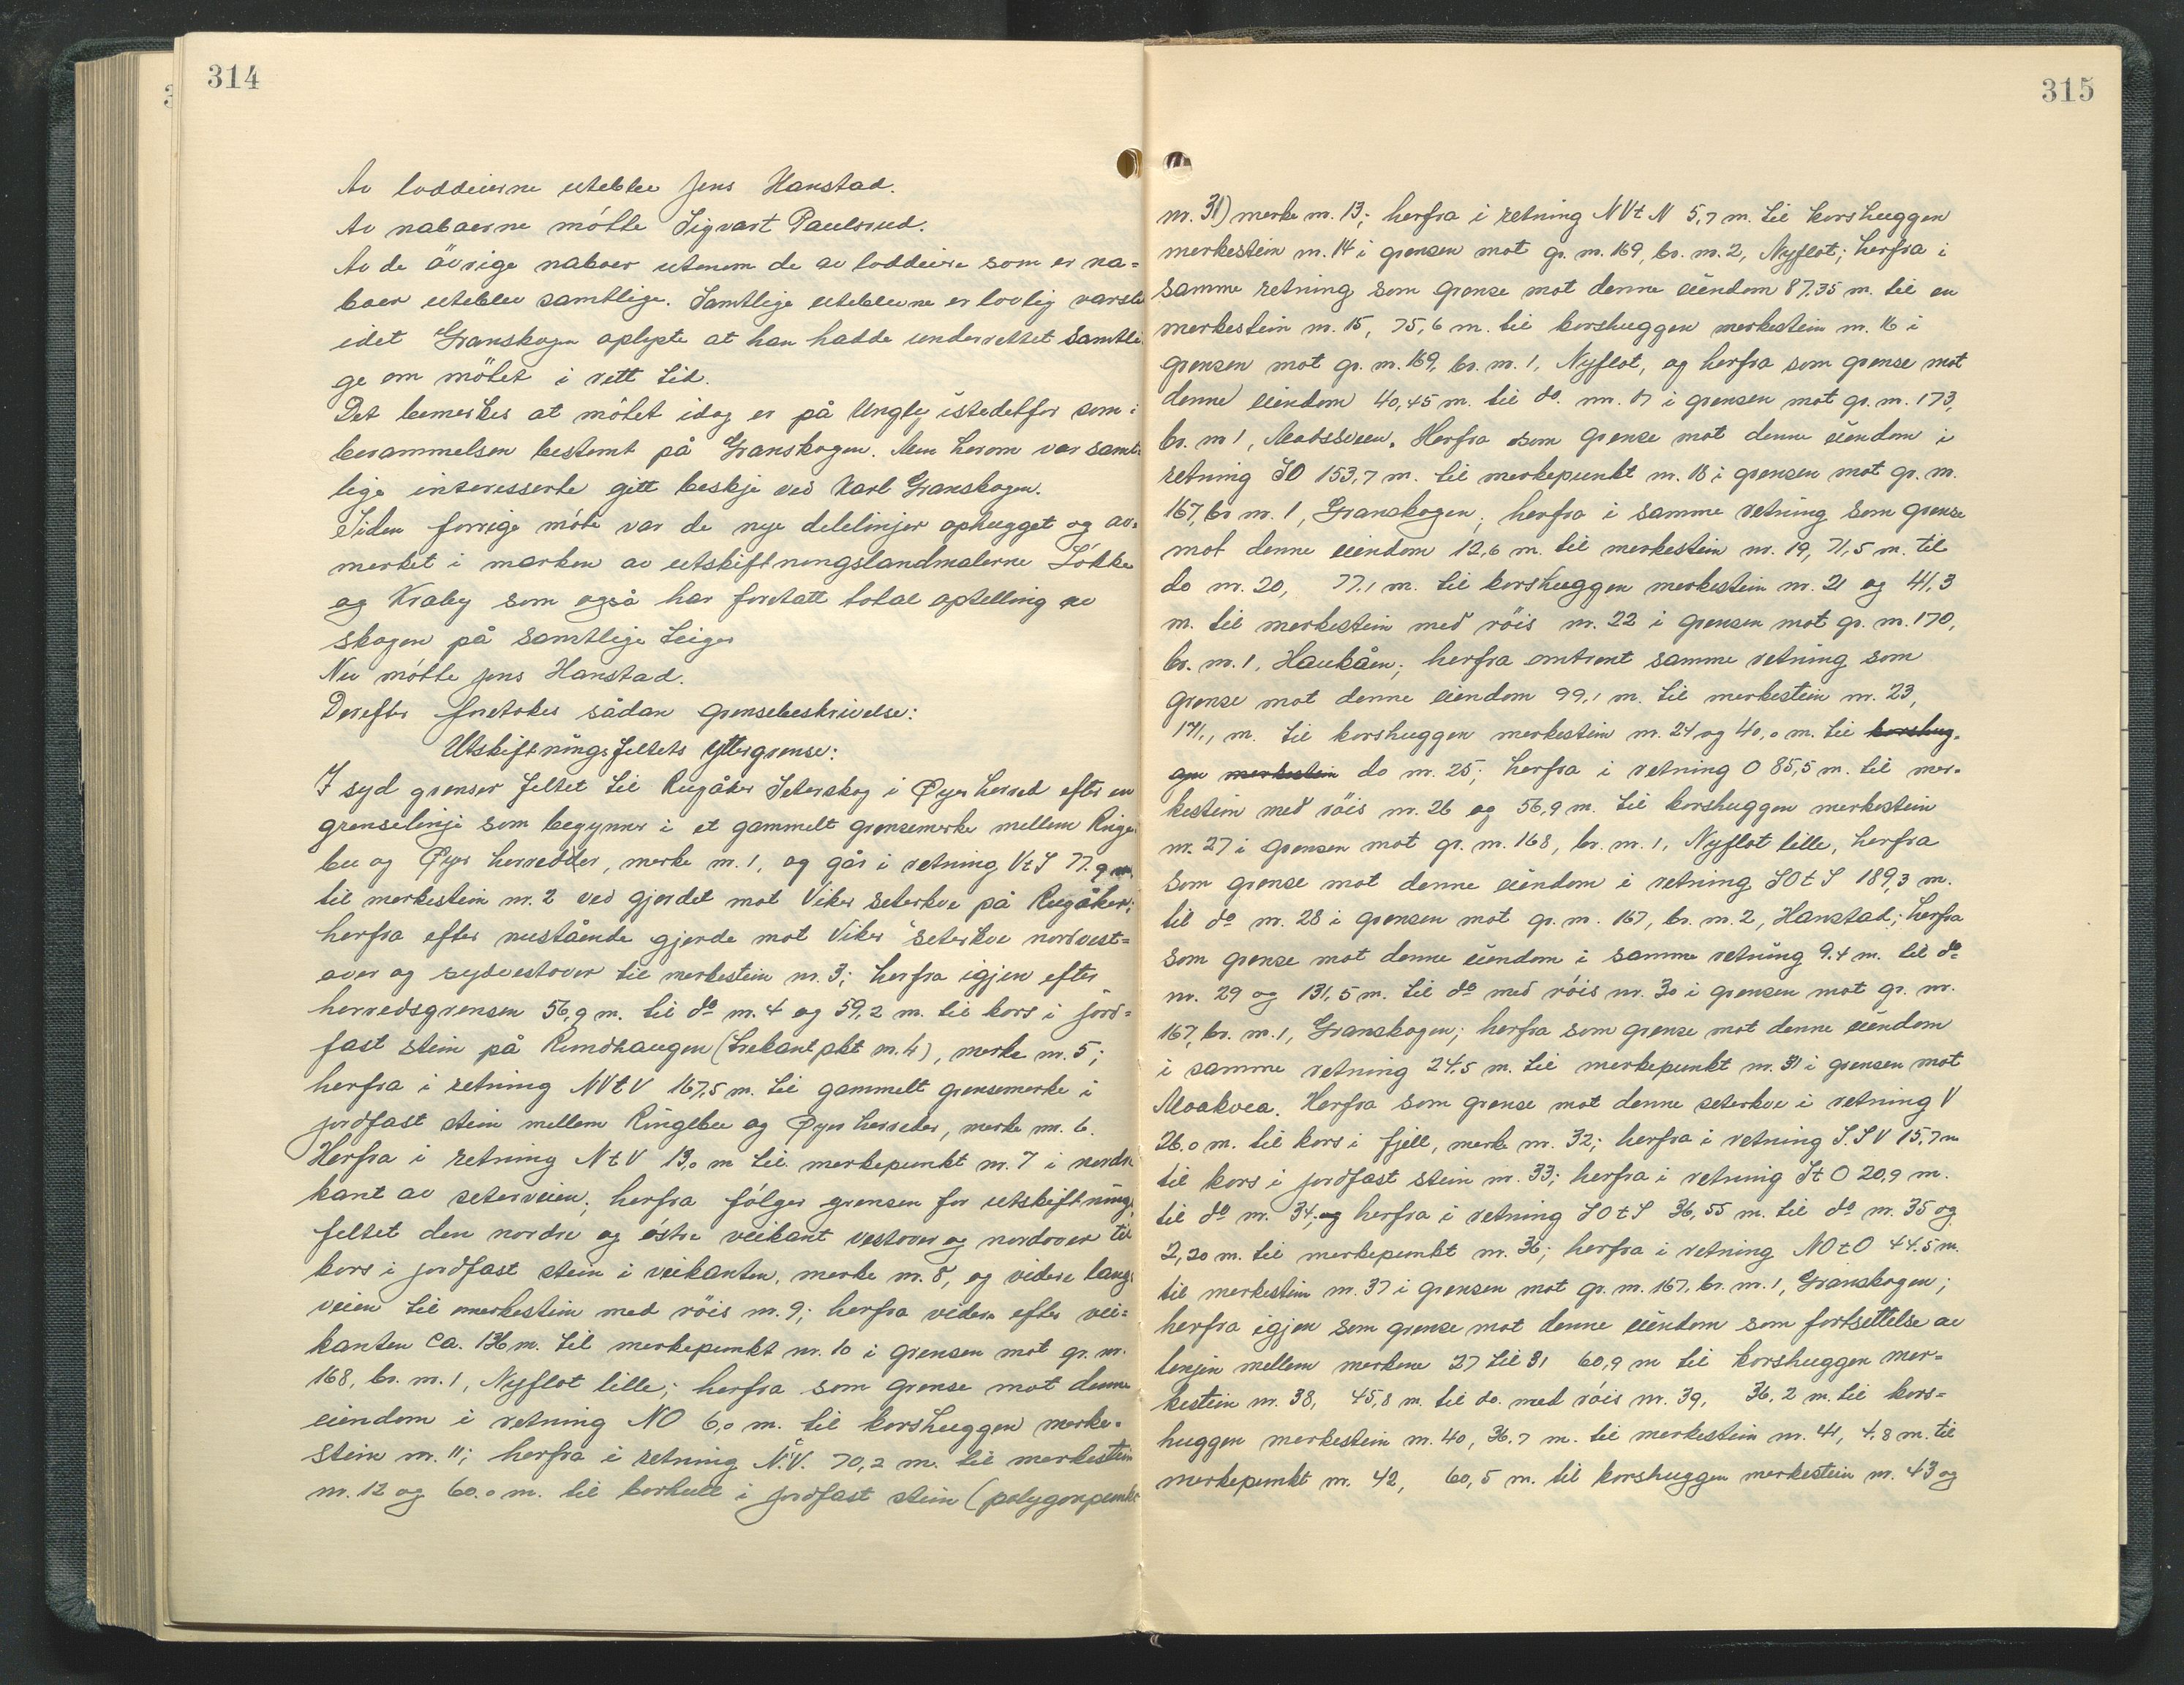 314
Av loddeierne uteblev Jens Hanstad.
Av naboerne mötte Sigvart Paulsrud.
Av de övrige naboer utenom de av loddeiere som er na=
boer uteblev samtlige. Samtlige uteblevne er lovlig varsle
idet Granskogen oplyste at han hadde underrettet samtli
ge om mötet i rett tid.
Det bemerkes at mötet idag er på Ungly istedetfor som i
berammelsen bestemt på Granskogen. Men herom var samt=
lige interesserte gitt beskje ved Karl Granskogen.
Siden forrige möte var de nye delelinjer ophugget og av=
merket i marken av utskiftningslandmalerne Lökke
og Kraby som også har foretatt total optelling av
skogen på samtlige teiger
Nu mötte Jens Hanstad.
Derefter foretokes sådan grensebeskrivelse:
Utskiftningsfeltets yttergrense:
I syd grenser feltet til Rugåker Seterskog i Øyer herred efter en
grenselinje som begynner i et gammelt grensemerke mellem Ringe
bu og Øyer herredder, merke nr. 1, og går i retning VtS 77.9 m.
til merkestein nr. 2 ved gjerdet mot Viker seterkve på Rugåker;
herfra efter nustående gjerde mot Viker seterkve nordvest=
over og sydvestover til merkestein nr. 3; herfra igjen efter
herredsgrensen 56,9 m. til do nr. 4 og 59,2 m. til kors i jord=
fast stein på Rundhaugen (trekant pkt nr. 4), merke nr. 5;
herfra i retning NVtV 167,5 m. til gammelt grensemerke i
jordfast stein mellem Ringebu og Øyer herreder, merke nr. 6.
Herfra i retning NtV 13,0 m til merkepunkt nr. 7 i nordre
kant av seterveien; herfra fölger grensen for utskiftnings
feltet den nordre og östre veikant vestover og nordover til
kors i jordfast stein i veikanten, merke nr. 8, og videre langs
veien til merkestein med röis nr. 9; herfra videre efter vei=
kanten ca. 136 m. til merkepunkt nr. 10 i grensen mot gr. nr.
168, br. nr. 1, Nyflot lille; herfra som grense mot denne
eiendom i retning NO 6,0 m. til korshuggen merke=
stein nr. 11; herfra i retning N.V. 70,2 m. til merkestein
nr. 12 og 60.0 m. til borhull i jordfast stein (polygonpunkt
315
nr. 31) merke nr. 13; herfra i retning NVtN 5,7 m. til korshuggen
merkestein nr. 14 i grensen mot gr. nr. 169, br. nr. 2, Nyflot; herfra i
samme retning som grense mot denne eiendom 87,35 m. til en
merkestein nr. 15, 75,6 m. til korshuggen merkestein nr. 16 i
grensen mot gr. nr. 169, br. nr. 1, Nyflot, og herfra som grense mot
denne eiendom 40,45 m. til do. nr. 17 i grensen mot gr. nr. 173,
br. nr 1, Madssveen. Herfra som grense mot denne eiendom i
retning SO 153,7 m. til merkepunkt nr. 18 i grensen mot gr. nr.
167, br nr. 1, Granskogen; herfra i samme retning som grense
mot denne eiendom 12,6 m. til merkestein nr. 19, 71,5 m. til
do nr. 20, 77.1 m. til korshuggen merkestein nr. 21 og 41,3
m. til merkestein med röis nr. 22 i grensen mot gr. nr. 170,
br. nr. 1, Haukåen; herfra omtrent samme retning som
grense mot denne eiendom 99,1 m. til merkestein nr. 23,
171,1 m. til korshuggen merkestein nr. 24 og 40,0 m. til korshug=
gen merkestein do nr. 25; herfra i retning O 85,5 m. til mer=
kestein med röis nr. 26 og 56,9 m. til korshuggen merkestein
nr. 27 i grensen mot gr. nr. 168, br. nr. 1, Nyflot lille, herfra
som grense mot denne eiendom i retning SOtS 189,3 m.
til do nr. 28 i grensen mot gr. nr. 167, br. nr. 2, Hanstad; herfra
som grense mot denne eiendom i samme retning 9.4 m. til do
nr. 29 og 131,5 m. til do med röis nr. 30 i grensen mot gr. nr.
167, br. nr. 1, Granskogen; herfra som grense mot denne eiendom
i samme retning 24.5 m. til merkepunkt nr. 31 i grensen mot
Moakvea. Herfra som grense mot denne seterkve i retning V
26.0 m. til kors i fjell, merke nr. 32; herfra i retning S.SV 15,7 m
til kors i jordfast stein nr. 33; herfra i retning StO 20,9 m.
til do nr. 34; og herfra i retning SOtS 36,55 m. til do nr. 35 og
2,20 m. til merkepunkt nr. 36; herfra i retning NOtO 44.5 m.
til merkestein nr. 37 i grensen mot gr. nr. 167, br. nr. 1, Granskogen;
herfra igjen som grense mot denne eiendom som fortsettelse av
linjen mellem merkene 27 til 31 60,9 m til korshuggen mer=
kestein nr. 38, 45,8 m. til do. med röis nr. 39, 36,2 m. til kors=
huggen merkestein nr. 40, 36.7 m. til merkestein nr. 41, 4,8 m. til
merkepunkt nr. 42, 60,5 m. til korshuggen merkestein nr. 43 og